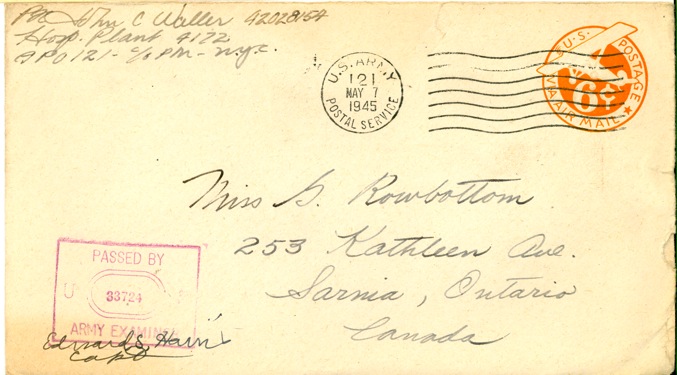 Pvt John C Waller 42028154
Hosp. Plant 4122
APO 121 - c/o PM - N.Y.C.
U.S. ARMY
121
MAY 7
1945
POSTAL SERVICE
U.S. POSTAGE
6¢
VIA AIR MAIL
Miss G. Rowbottom
253 Kathleen Ave.
Sarnia, Ontario
Canada
PASSED BY
U
33724
ARMY EXAMINER
Edward E.
Capt